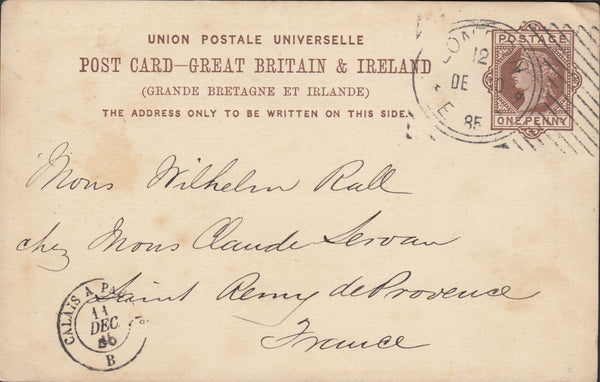 UNION POSTALE UNIVERSELLE
POST CARD—GREAT BRITAIN & IRELAND
(GRANDE BRETAGNE ET IRLANDE)
THE ADDRESS ONLY TO BE WRITTEN ON THIS SIDE.
POSTAGE
ONE PENNY
12
DE
E
85
Mons Wilhelm Rall
chez Mons Claude Servan
Saint Remy de Provence
France
CALAIS A
11
DEC
B